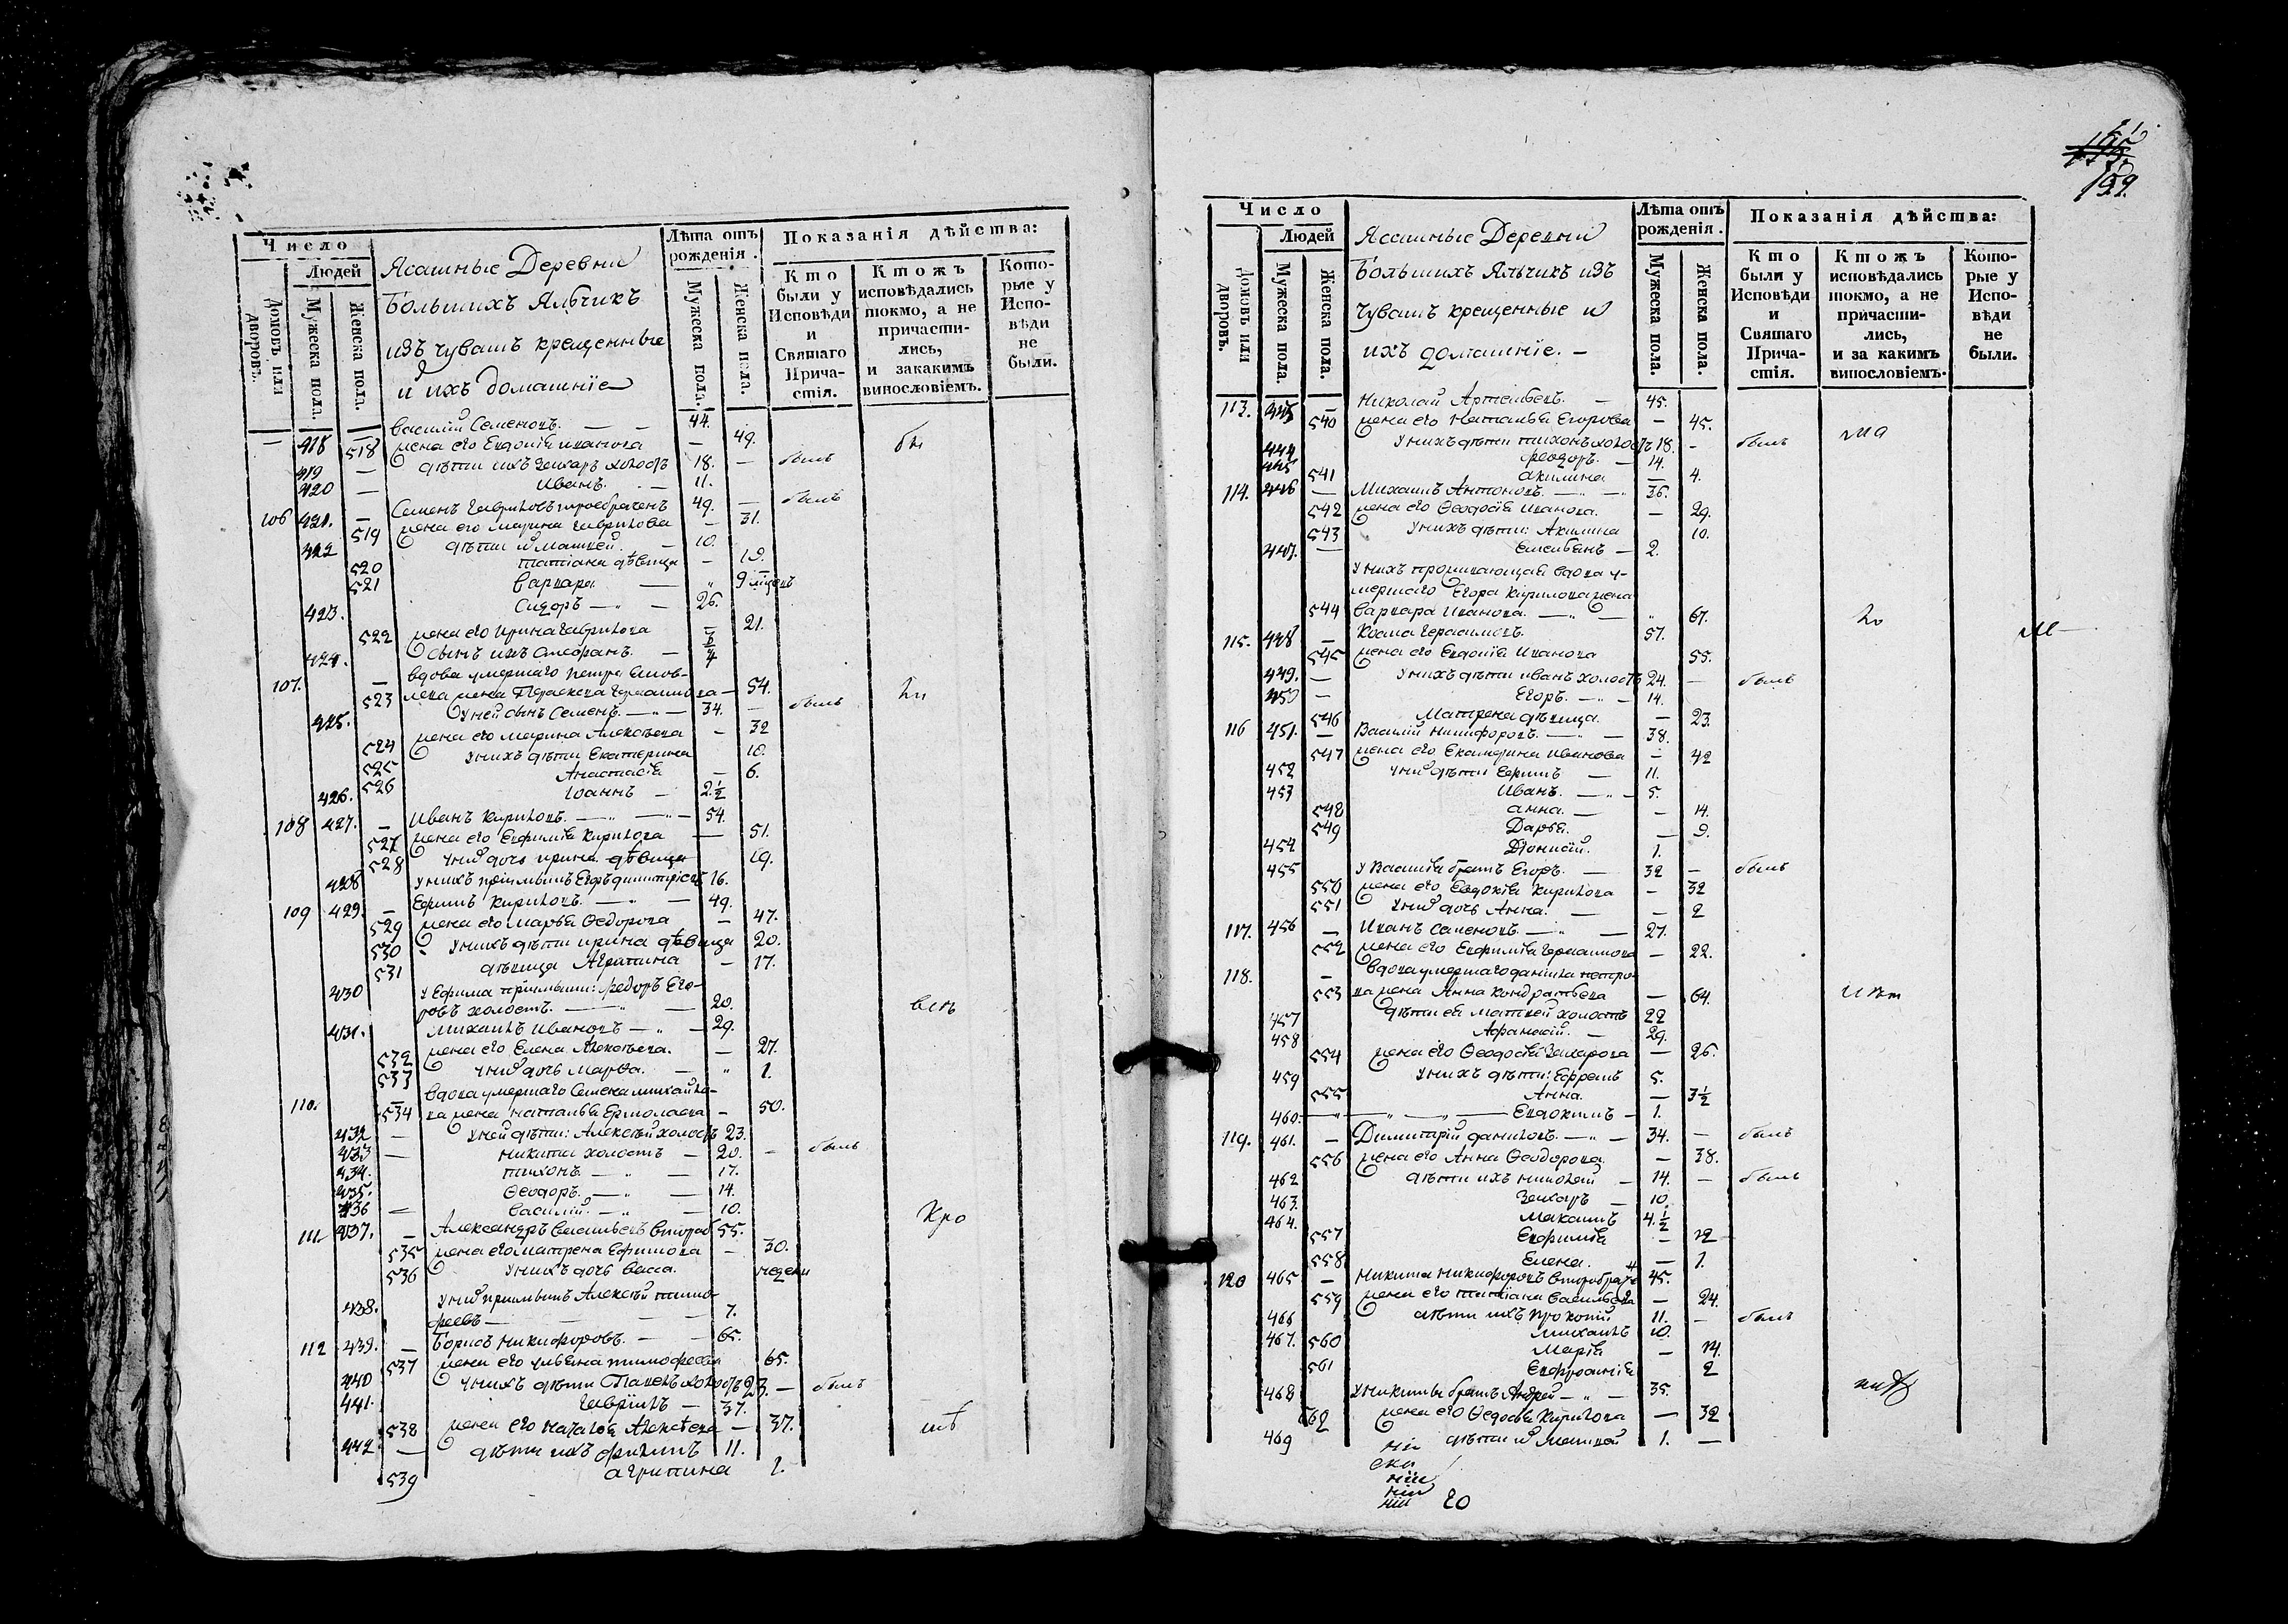 Число
Людей
Домовъ или дворовъ.
Мужеска пола.
Женска пола.
Ясашные Деревни
Большихъ Яльчикъ
изъ чувашъ крещенные
и ихъ домашніе
Лѣта отъ рожденія.
Мужеска пола.
Женска пола.
Показанія дѣйства:
Кто были у Исповѣди и Святаго Причастія.
Ктожъ исповѣдались токмо, а не причастились, и закакимъ винословіемъ.
Которые у Исповѣди не были.
— 418 — Василий Семеновъ. — — 44.
518 жена его Евдокія Иванова — 49.
419 — дѣти ихъ Захаръ холостъ 18. — былъ
420 — Иванъ. 11.
106 421. — Семенъ Гавриловъ 49. — былъ
519 жена его Марина Гаврилова — 31.
422 дѣти Матвей. — 10.
520 Татіана дѣвица — 19.
521 Варвара — " 9
423. Сидоръ — " — 26.
522 жена его Ирина Гаврилова — 21.
424. сынъ ихъ —
107. — вдова умершаго Петра
523 жена Параскева Герасимова — 54.
425. У ней сынъ Семенъ. — " — 34. — былъ
524 жена его Марина Алексѣева — 32
525 Унихъ дѣти Екатерина 10.
526 Анастасія — 6.
426. Іоаннъ — 2½
108 427. — Иванъ Кириловъ. — " — " — 54.
527 жена его Евфимія Кирилова — 51.
528 Унихъ дочь Ирина дѣвица 19.
428 Унихъ пріимышъ 16.
109 429. — Ефимъ Кириловъ. — " — 49.
529 жена его Марья Ѳедорова — 47.
530 Унихъ дѣти Ирина дѣвица 20.
531 дѣвица Агрипина — 17.
430 У Ефима пріимыши: Федоръ Его-
ровъ холостъ. — " — 20.
431. Михаилъ Ивановъ — " — 29.
532 жена его Елена Алексѣева. — 27.
533 Унихъ дочь Марѳа. — " 1.
110. — вдова умершаго Семена Михайло-
534 ва жена Наталья Ермолаева — 50.
432 — Уней дѣти: Алексѣй холостъ 23.
433 — Никита холостъ — 20. — былъ
434. Тихонъ. — " — 17.
435. Ѳеодоръ. — " — 14.
436 — Василій. — " — 10.
111. 437. — Александръ Васильевъ 55.
535 жена его Матрена Ефимова — 30.
536 Унихъ дочь Васса. недели
438. Унихъ пріимышъ Алексѣй Тимо-
феевъ — — — 7.
112 439. — Борисъ Никифоровъ. — — 65.
537 жена его Ульяна Тимофеева 65.
440 Унихъ дѣти Павелъ холостъ 23. — былъ
441. Гаврилъ — 37.
538 жена его Наталья Алексѣева — 37.
442 — дѣти ихъ Филипъ 11.
539 Агрипина 1.
129.
Число
Людей
Домовъ или дворовъ.
Мужеска пола.
Женска пола.
Ясашные Деревни
Большихъ Яльчикъ изъ
чувашъ крещенные и
ихъ домашніе. —
Лѣта отъ рожденія.
Мужеска пола.
Женска пола.
Показанія дѣйства:
Кто были у Исповѣди и Святаго Причастія.
Ктожъ исповѣдались токмо, а не причастились, и за какимъ винословіемъ.
Которые у Исповѣди не были.
113. 443 — Николай Артемьевъ. — 45.
540 жена его Наталья Егорова — 45.
444 Унихъ дѣти Тихонъ холостъ 18. — былъ
445 Феодоръ. — 14.
541 Акилина — 4.
114. 446 — Михаилъ Антоновъ. — " — 36.
542 жена его Ѳеодосія Иванова. — 29.
543 Унихъ дѣти: Акилина 10.
447. — Емельянъ — 2.
Унихъ проживающая вдова у-
мершаго Егора Кирилова жена
544 Варвара Иванова. — " — " 67.
115. 448 — Козма Герасимовъ. 57.
545 жена его Евдокія Иванова 55.
449. — Унихъ дѣти Иванъ холостъ 24. — былъ
450 — Егоръ. — " — 14.
546 Матрена дѣвица. — 23.
116 451. — Василій Никифоровъ. — " — 38.
547 жена его Екатерина Иванова — 42
452 Унихъ дѣти Ефимъ — 11.
453 Иванъ. — " — 5.
548 Анна. — — 14.
549 Дарья. — 9.
454 Діонисій. 1.
455 У Василія братъ Егоръ. — 32 — былъ
550 жена его Евдокія Кирилова — 32
551 Унихъ дочь Анна. — — 2
117. 456 — Иванъ Семеновъ. — " — 27.
552 жена его Евфимія Герасимова — 22.
118. — Вдова умершаго Данила Петро-
553 ва жена Анна Кондратьева — 64.
457 дѣти ея Матвей холостъ 22
458 Афанасій. — 29.
554 жена его Ѳеодосія Захарова — 26.
459 Унихъ дѣти: Ефремъ 5.
555 Анна. — 3½
460. — " — " — " — Евдокимъ — 1.
119. 461. — Димитрій Даниловъ. — " — 34. — былъ
556 жена его Анна Ѳеодорова — 38.
462 дѣти ихъ Николай — 14. — былъ
463. Захаръ — 10.
464. Максимъ 4.½
557 Евфимія — 12
558. Елена. — 1.
120 465 — Никита Никифоровъ 45.
559 жена его Татіана Васильева — 24.
466 дѣти ихъ Прокопій 11. — былъ
467. Михаилъ 10.
560 Марія — 14.
561 Евфросинія 2
468 У Никиты братъ Андрей — " — 35.
562 жена его Ѳедосья Кирилова — 32
469 дѣти Матвей 1. —
20